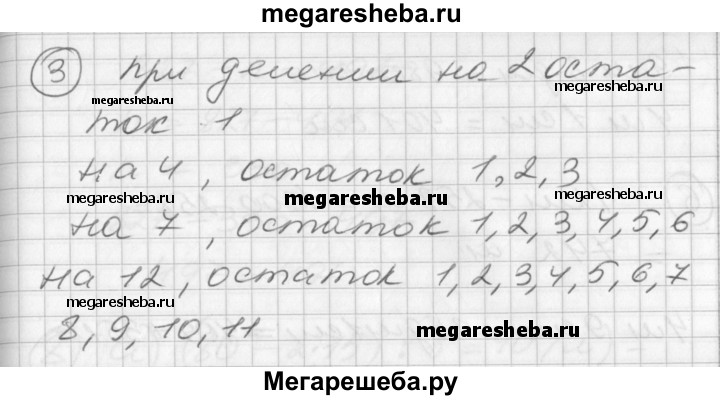 megaresheba.ru
3 при делении на 2 оста-
megaresheba.ru
megaresheba.ru
ток 1
на 4, остаток 1, 2, 3
megaresheba.ru
megaresheba.ru
на 7, остаток 1, 2, 3, 4, 5, 6
на 12, остаток 1, 2, 3, 4, 5, 6, 7
megaresheba.ru
8, 9, 10, 11
megaresheba.ru
Мегарешеба.ру